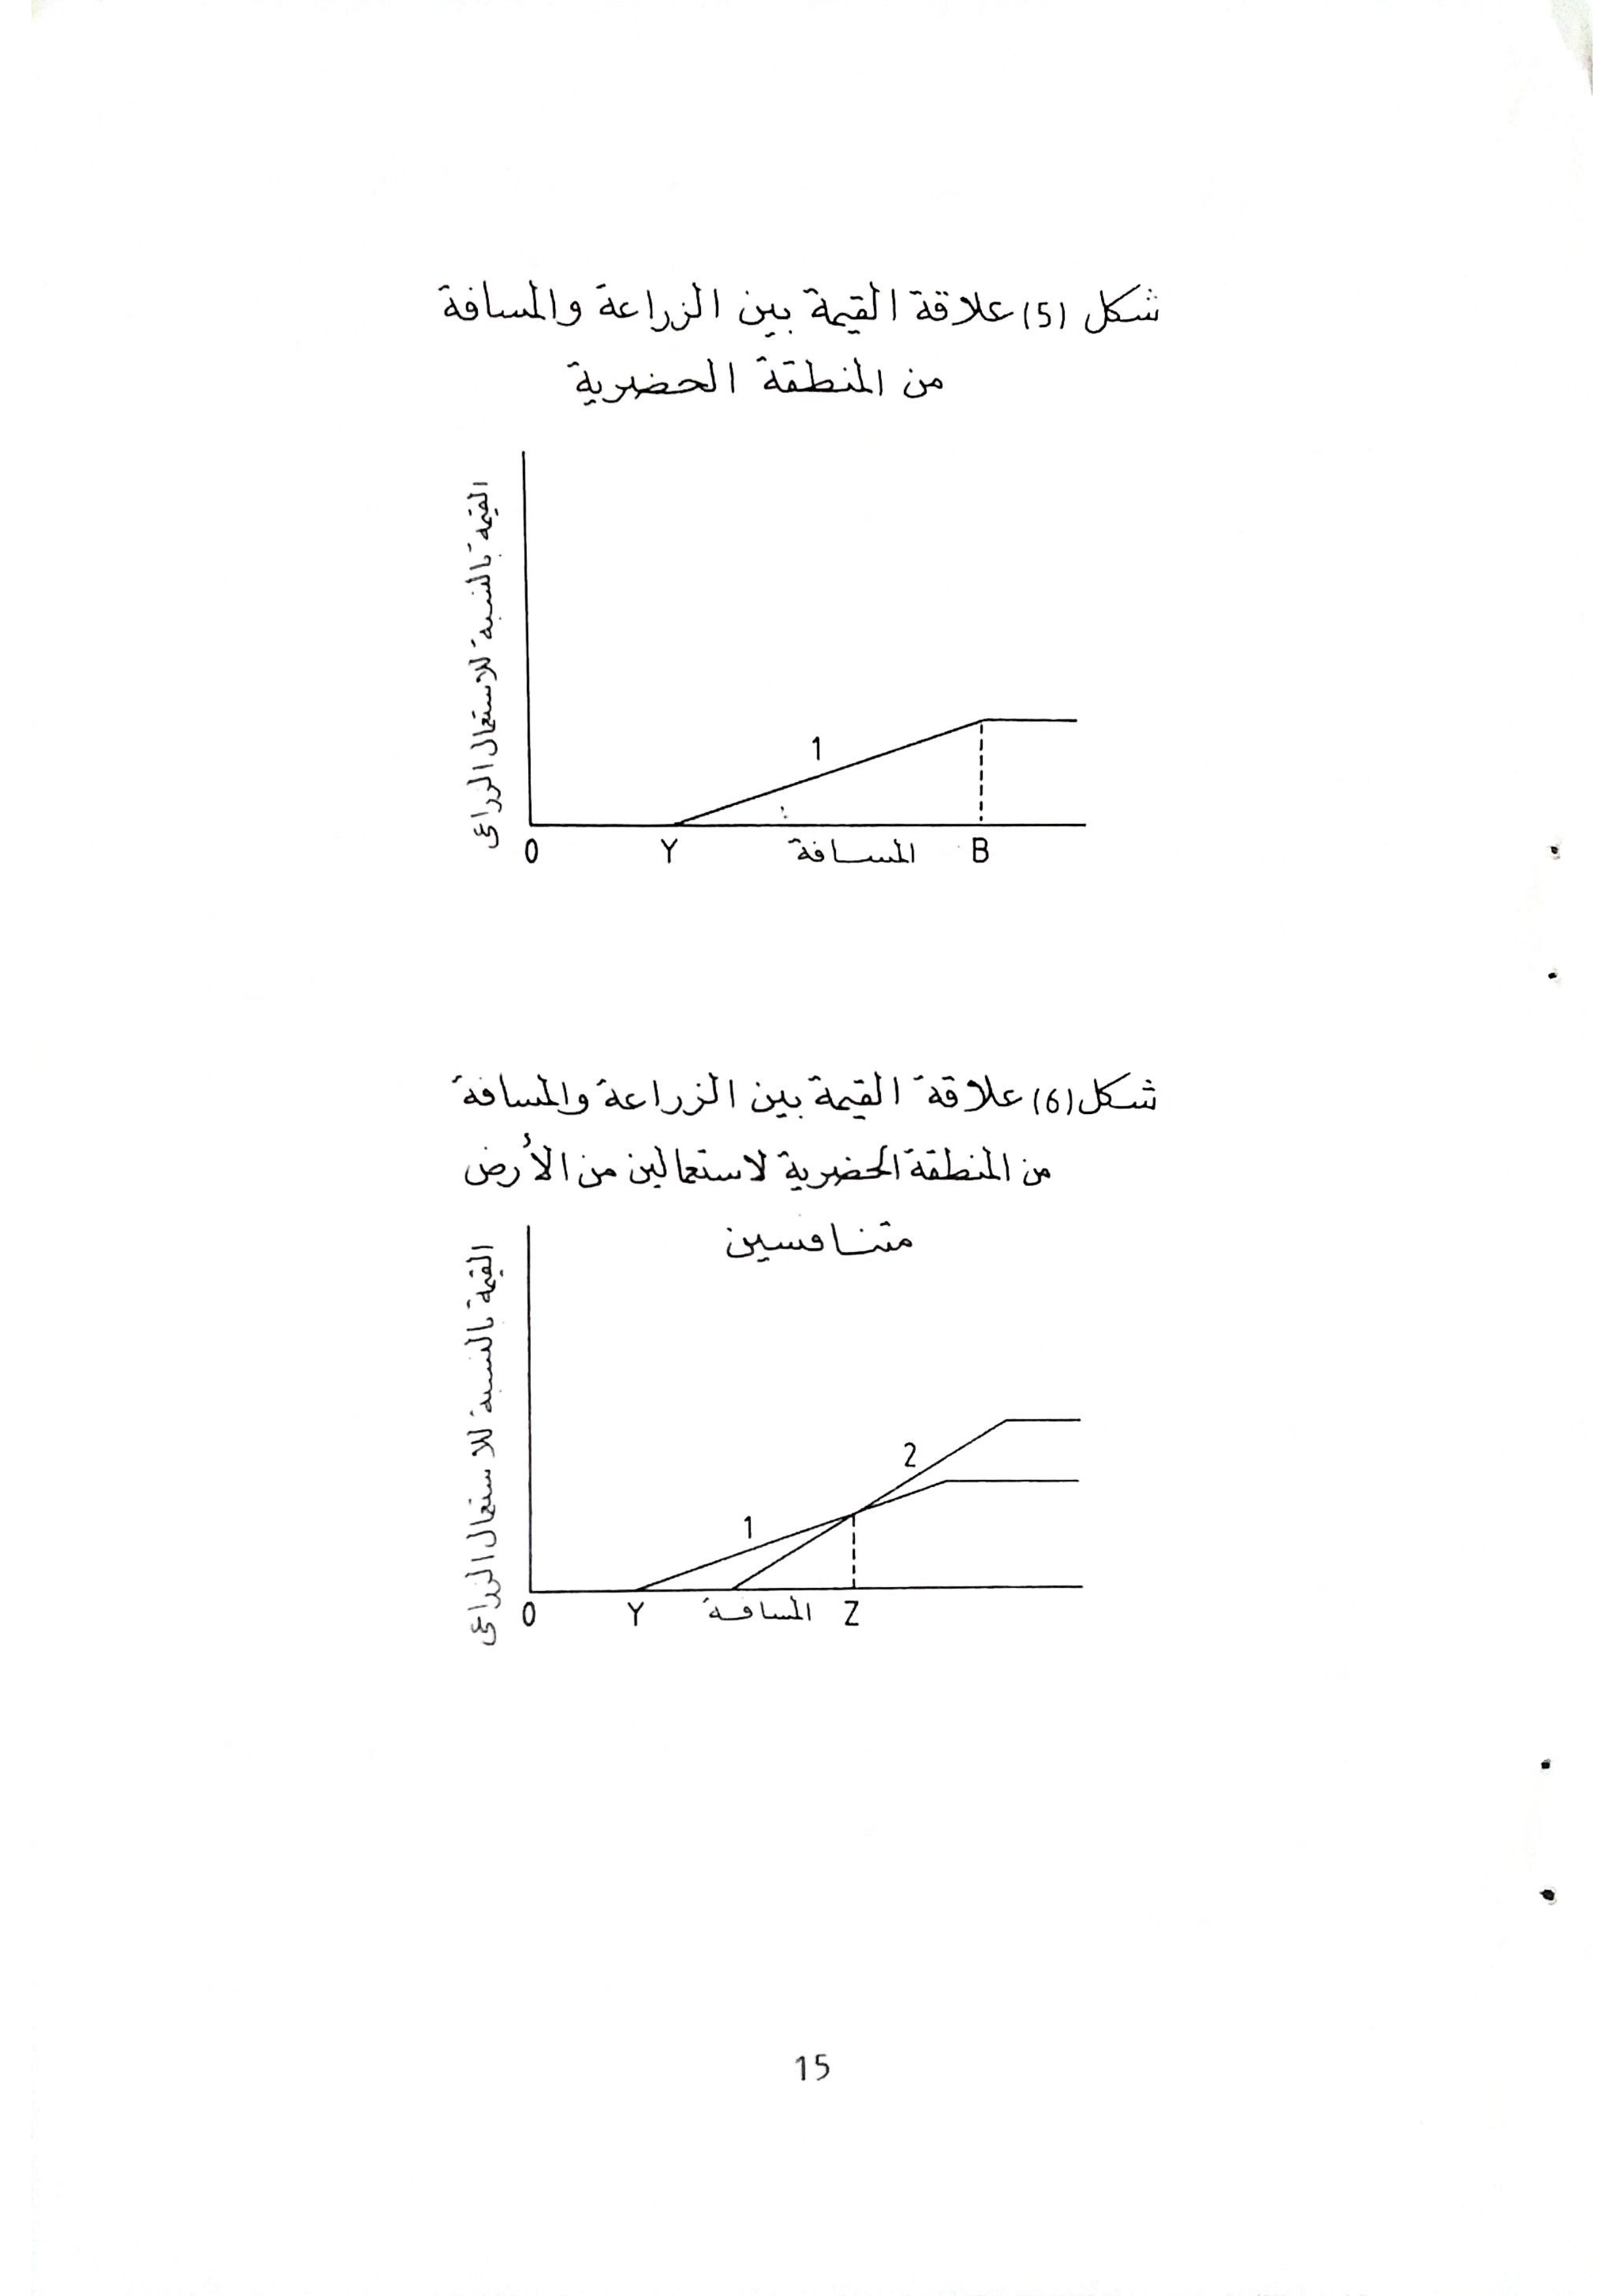 شكل (5) علاقة القيمة بين الزراعة والمسافة
من المنطقة الحضرية
القيمة بالنسبة للاستعمال الزراعى
1
O Y المسافة B
شكل (6) علاقة القيمة بين الزراعة والمسافة
من المنطقة الحضرية لاستعمالين من الأرض
متنافسين
القيمة بالنسبة للاستعمال الزراعى
2
1
O Y المسافة Z
15